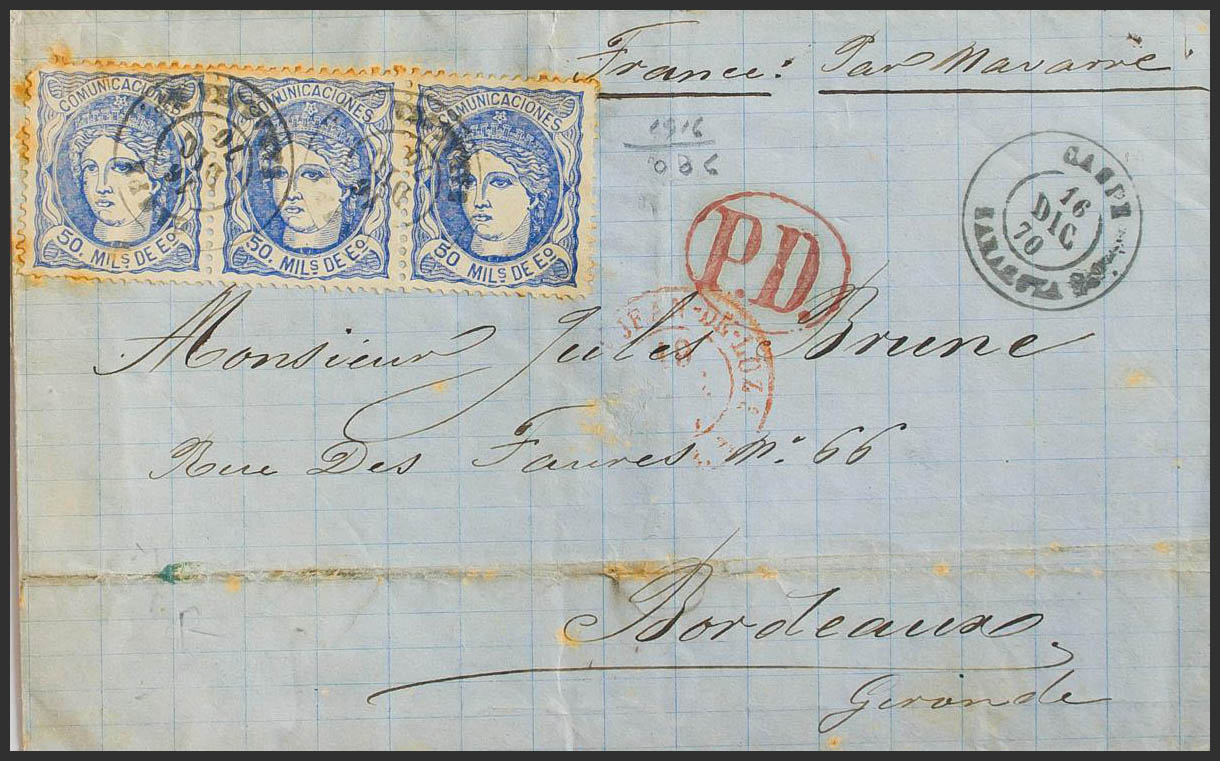 France: Par Navarre
COMUNICACIONES
50. MILS DE Eº
COMUNICACIONES
50. MILS DE Eº
COMUNICACIONES
50 MILS DE Eº
1916
086
P.D.
CASPE
16
DIC
70
ZARAGOZA
JEAN-DE-LUZ
Monsieur Jules Brune
Rue Des Faures Nº 66
Bordeaux
Gironde